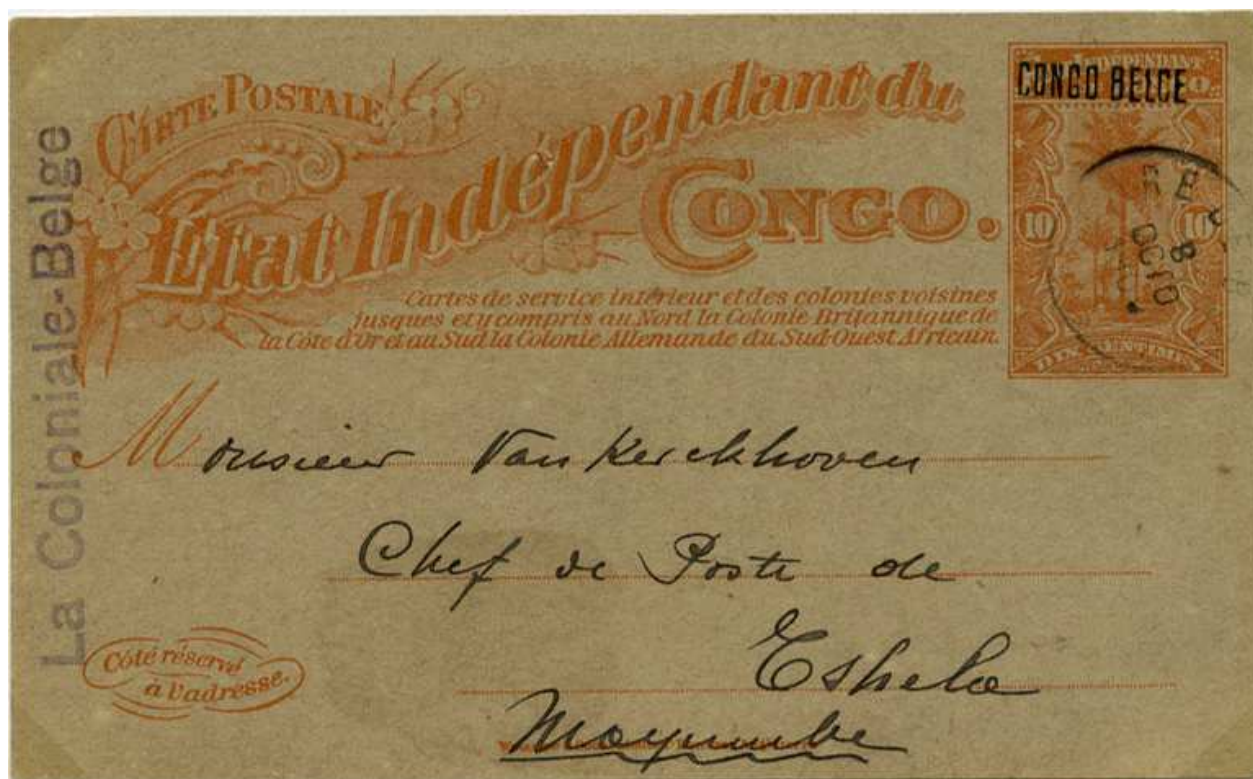 CARTE POSTALE
État Indépendant du
CONGO.
Cartes de service intérieur et des colonies voisines
jusques et y compris au Nord la Colonie Britannique de
la Côte d'Or et au Sud la Colonie Allemande du Sud-Ouest Africain.
INDÉPENDANT
CONGO BELGE
10 10
8
OC 10
DIX CENTIMES
La Coloniale-Belge
Monsieur Van Kerckhoven
Chef de Poste de
Eshela
Mayumbe
Côté réservé
à l'adresse.